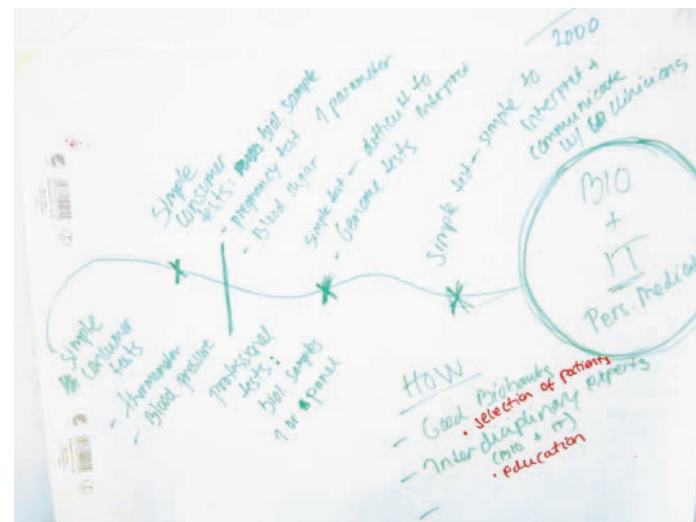 2000
Simple
consumer
tests: biol. sample
- pregnancy test 1 parameter
- Blood sugar
simple test - difficult to
interpret
- Genome tests
Simple test - simple to
interpret +
communicate
w/ clinicians
BIO
+
IT
Pers. Medicine
Simple
consumer
tests
- thermometer
- Blood pressure
professional
tests:
biol samples
1 or panel
HOW
- Good Biobanks
• selection of patients
- Interdisciplinary experts
(BIO + IT)
• education
-